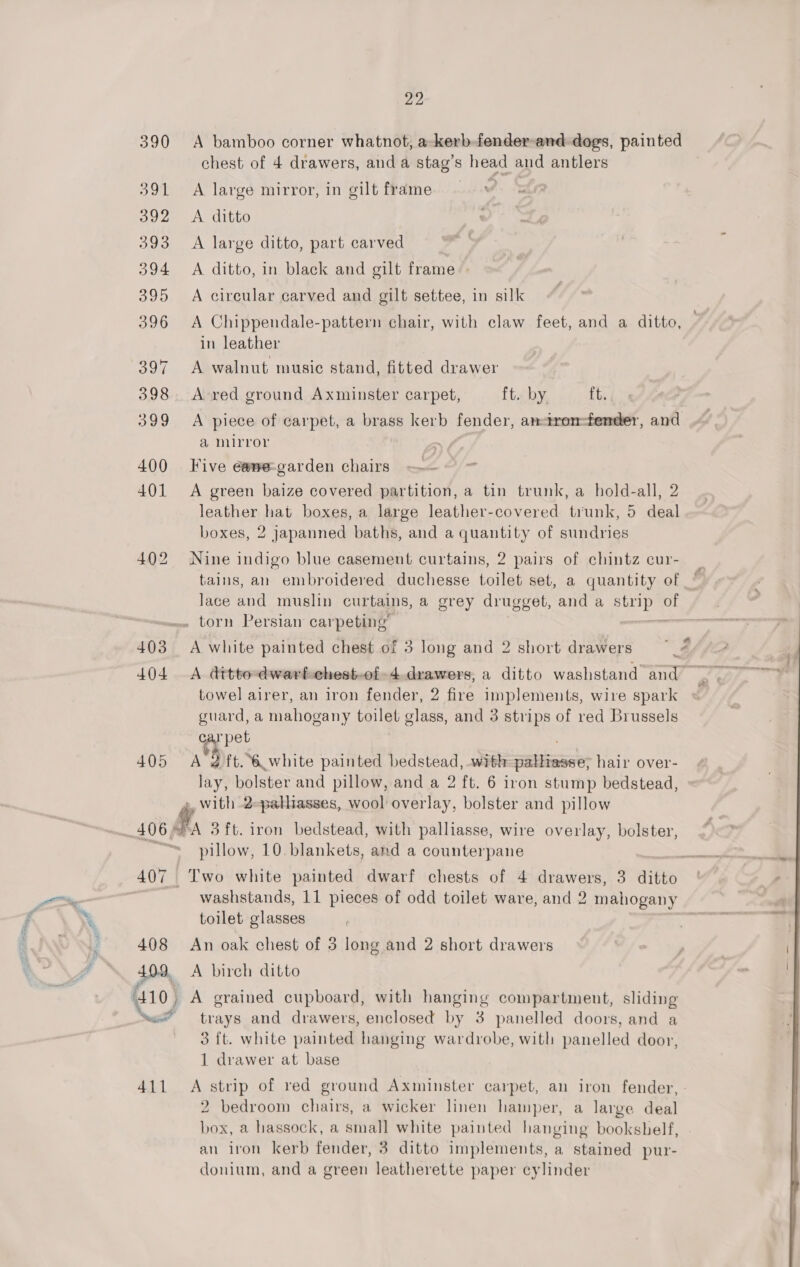 22
390 A bamboo corner whatnot, a kerb fender and dogs, painted
chest of 4 drawers, and a stag's head and antlers
391 A large mirror, in gilt frame
392 A ditto
393 A large ditto, part carved
394 A ditto, in black and gilt frame
395 A circular carved and gilt settee, in silk
396 A Chippendale-pattern chair, with claw feet, and a ditto,
in leather
397 A walnut music stand, fitted drawer
398 A red ground Axminster carpet, ft. by ft.
399 A piece of carpet, a brass kerb fender, an iron fender, and
a mirror
400 Five cane garden chairs
401 A green baize covered partition, a tin trunk, a hold-all, 2
leather hat boxes, a large leather-covered trunk, 5 deal
boxes, 2 japanned baths, and a quantity of sundries
402 Nine indigo blue casement curtains, 2 pairs of chintz cur-
tains, an embroidered duchesse toilet set, a quantity of
lace and muslin curtains, a grey drugget, and a strip of
torn Persian carpeting
403 A white painted chest of 3 long and 2 short drawers
404 A ditto dwarf chest of 4 drawers, a ditto washstand and
towel airer, an iron fender, 2 fire implements, wire spark
guard, a mahogany toilet glass, and 3 strips of red Brussels
carpet
405 A ft. 6 white painted bedstead, with palliasse, hair over-
lay, bolster and pillow, and a 2 ft. 6 iron stump bedstead,
with 2 palliasses, wool overlay, bolster and pillow
406 A 3 ft. iron bedstead, with palliasse, wire overlay, bolster,
pillow, 10 blankets, and a counterpane
407 Two white painted dwarf chests of 4 drawers, 3 ditto
washstands, 11 pieces of odd toilet ware, and 2 mahogany
toilet glasses
408 An oak chest of 3 long and 2 short drawers
409 A birch ditto
410 A grained cupboard, with hanging compartment, sliding
trays and drawers, enclosed by 3 panelled doors, and a
3 ft. white painted hanging wardrobe, with panelled door,
1 drawer at base
411 A strip of red ground Axminster carpet, an iron fender,
2 bedroom chairs, a wicker linen hamper, a large deal
box, a hassock, a small white painted hanging bookshelf,
an iron kerb fender, 3 ditto implements, a stained pur-
donium, and a green leatherette paper cylinder